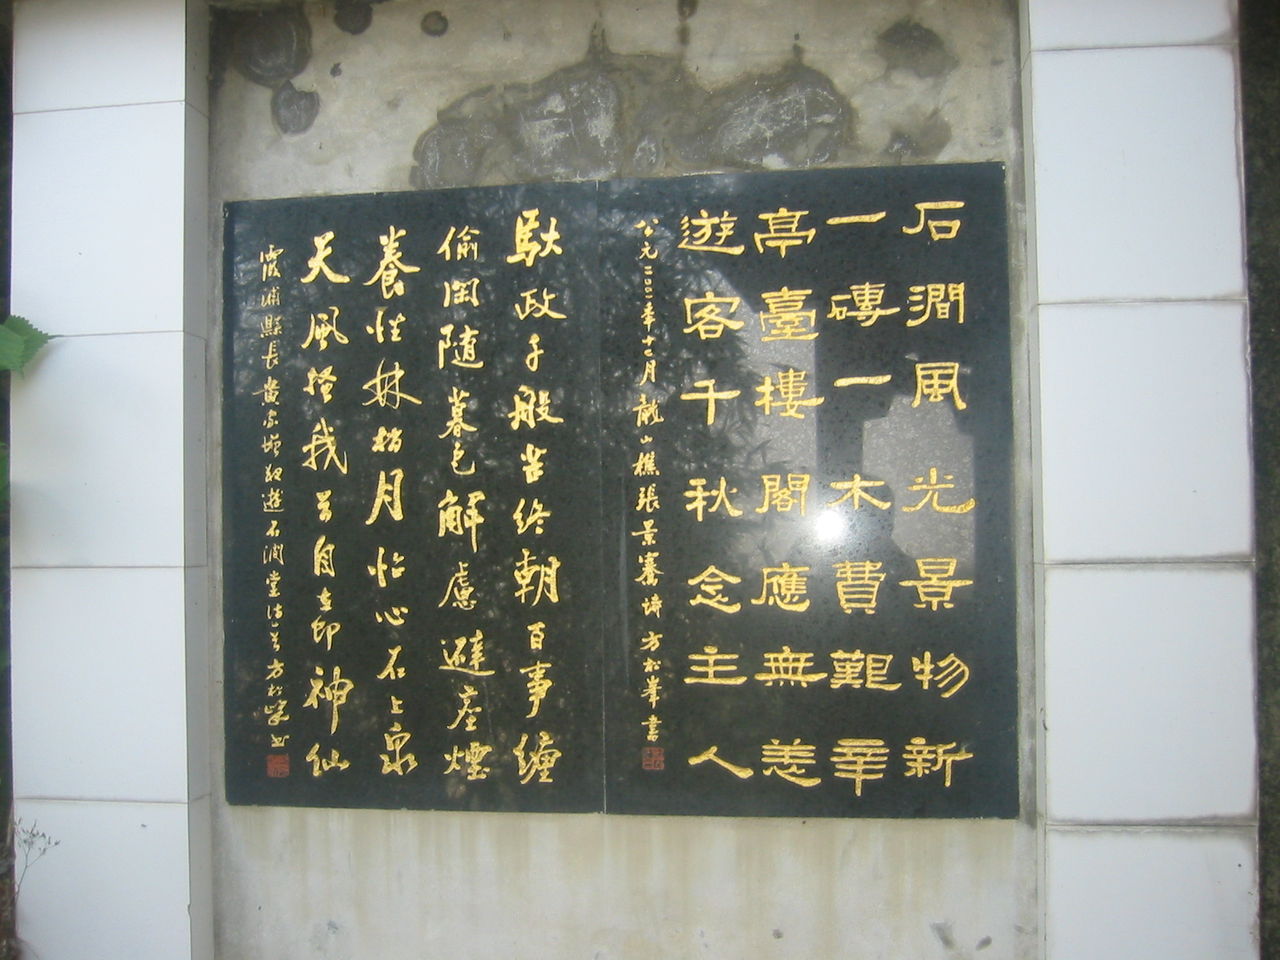 石澗風光景物新
一磚一木費艱辛
亭臺樓閣應無恙
遊客千秋念主人
公元二〇〇一年十二月龍山樵張景騫詩方松峯書
馱政千般苦終朝百事纏
偷閑隨暮色解慮避塵煙
養性林梢月怡心石上泉
天風搔我首自在即神仙
霞浦縣長黃家遊石澗堂詩一首方松峯书